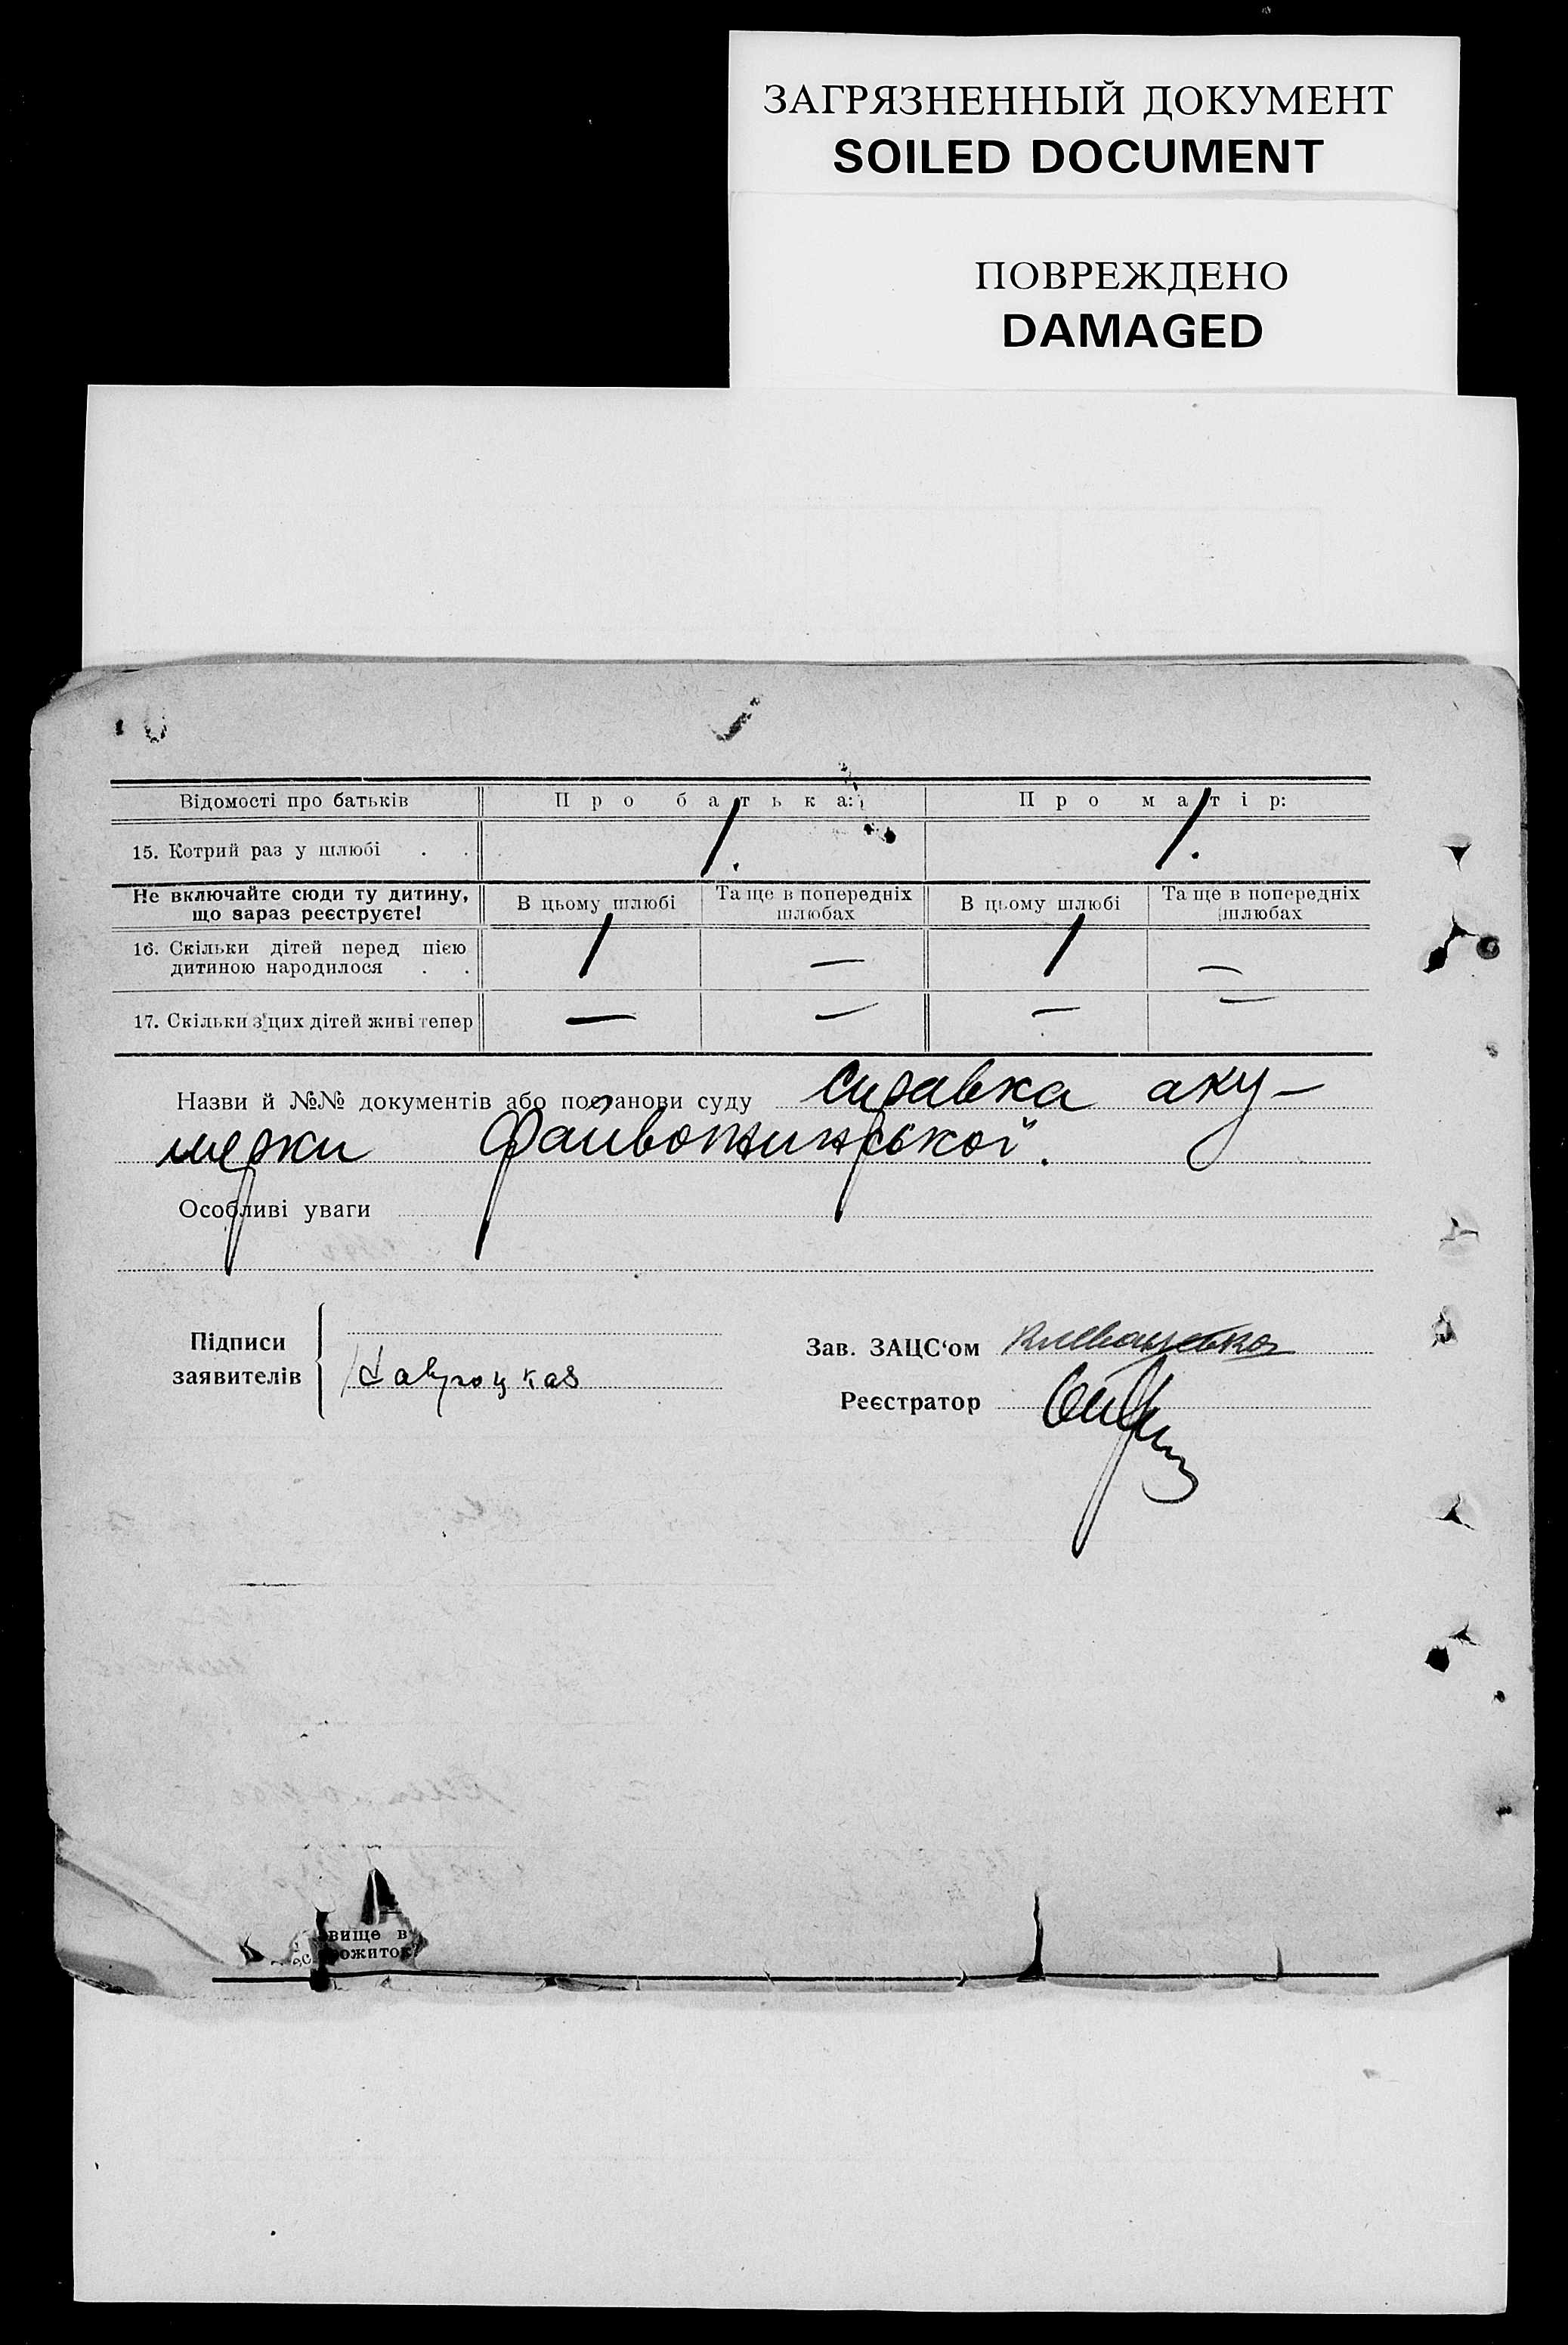 ЗАГРЯЗНЕННЫЙ ДОКУМЕНТ
SOILED DOCUMENT
ПОВРЕЖДЕНО
DAMAGED
Відомості про батьків Про батька: Про матір:
15. Котрий раз у шлюбі . . 1. 1.
Не включайте сюди ту дитину, що зараз реєструєте! В цьому шлюбі Та ще в попередніх шлюбах В цьому шлюбі Та ще в попередніх шлюбах
16. Скільки дітей перед цією дитиною народилося . . 1 — 1 —
17. Скільки з цих дітей живі тепер — — — —
Назви й №№ документів або постанови суду справка аку-
шерки
Особливі уваги
Підписи
заявителів
Зав. ЗАЦС‘ом
Реєстратор
вище в
ожиток